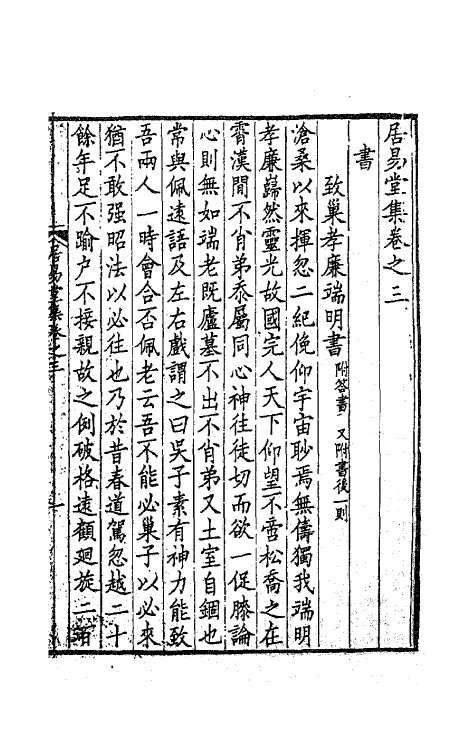 居易堂集卷之三
書
致巢孝廉端明書附答書又附書後一則
滄桑以來揮忽二紀俛仰宇宙眇焉無儔獨我端明
孝廉巋然靈光故國完人天下仰望不啻松喬之在
霄漢間不肖弟忝屬同心神往徒切而欲一促膝論
心則無如端老既廬墓不出不肖弟又土室自錮也
常與佩遠語及左右戲謂之曰吳子素有神力能致
吾兩人一時會合否佩老云吾不能必巢子以必來
猶不敢强昭法以必往也乃於昔春道駕忽越二十
餘年足不踰户不接親故之例破格遠顧廻旋二
居易堂集卷之三
一